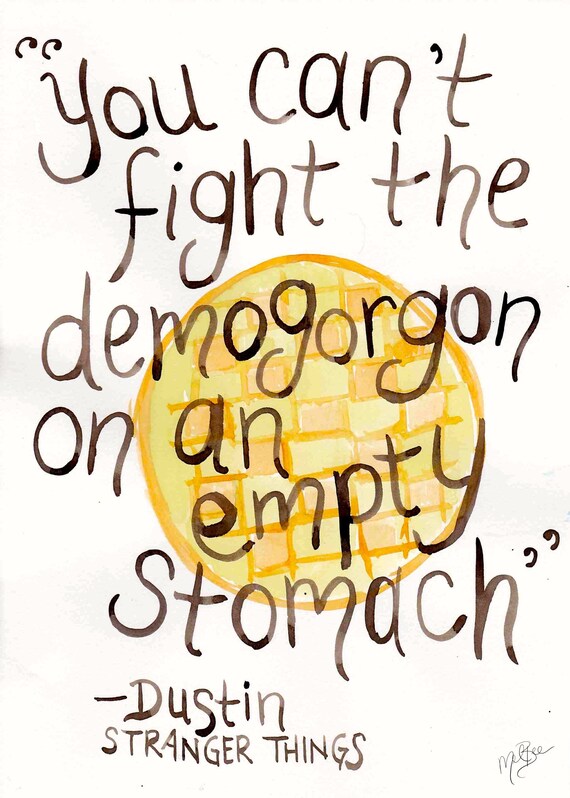 “You can't
fight the
demogorgon
on an
empty
Stomach”
-Dustin
STRANGER THINGS
MelBee